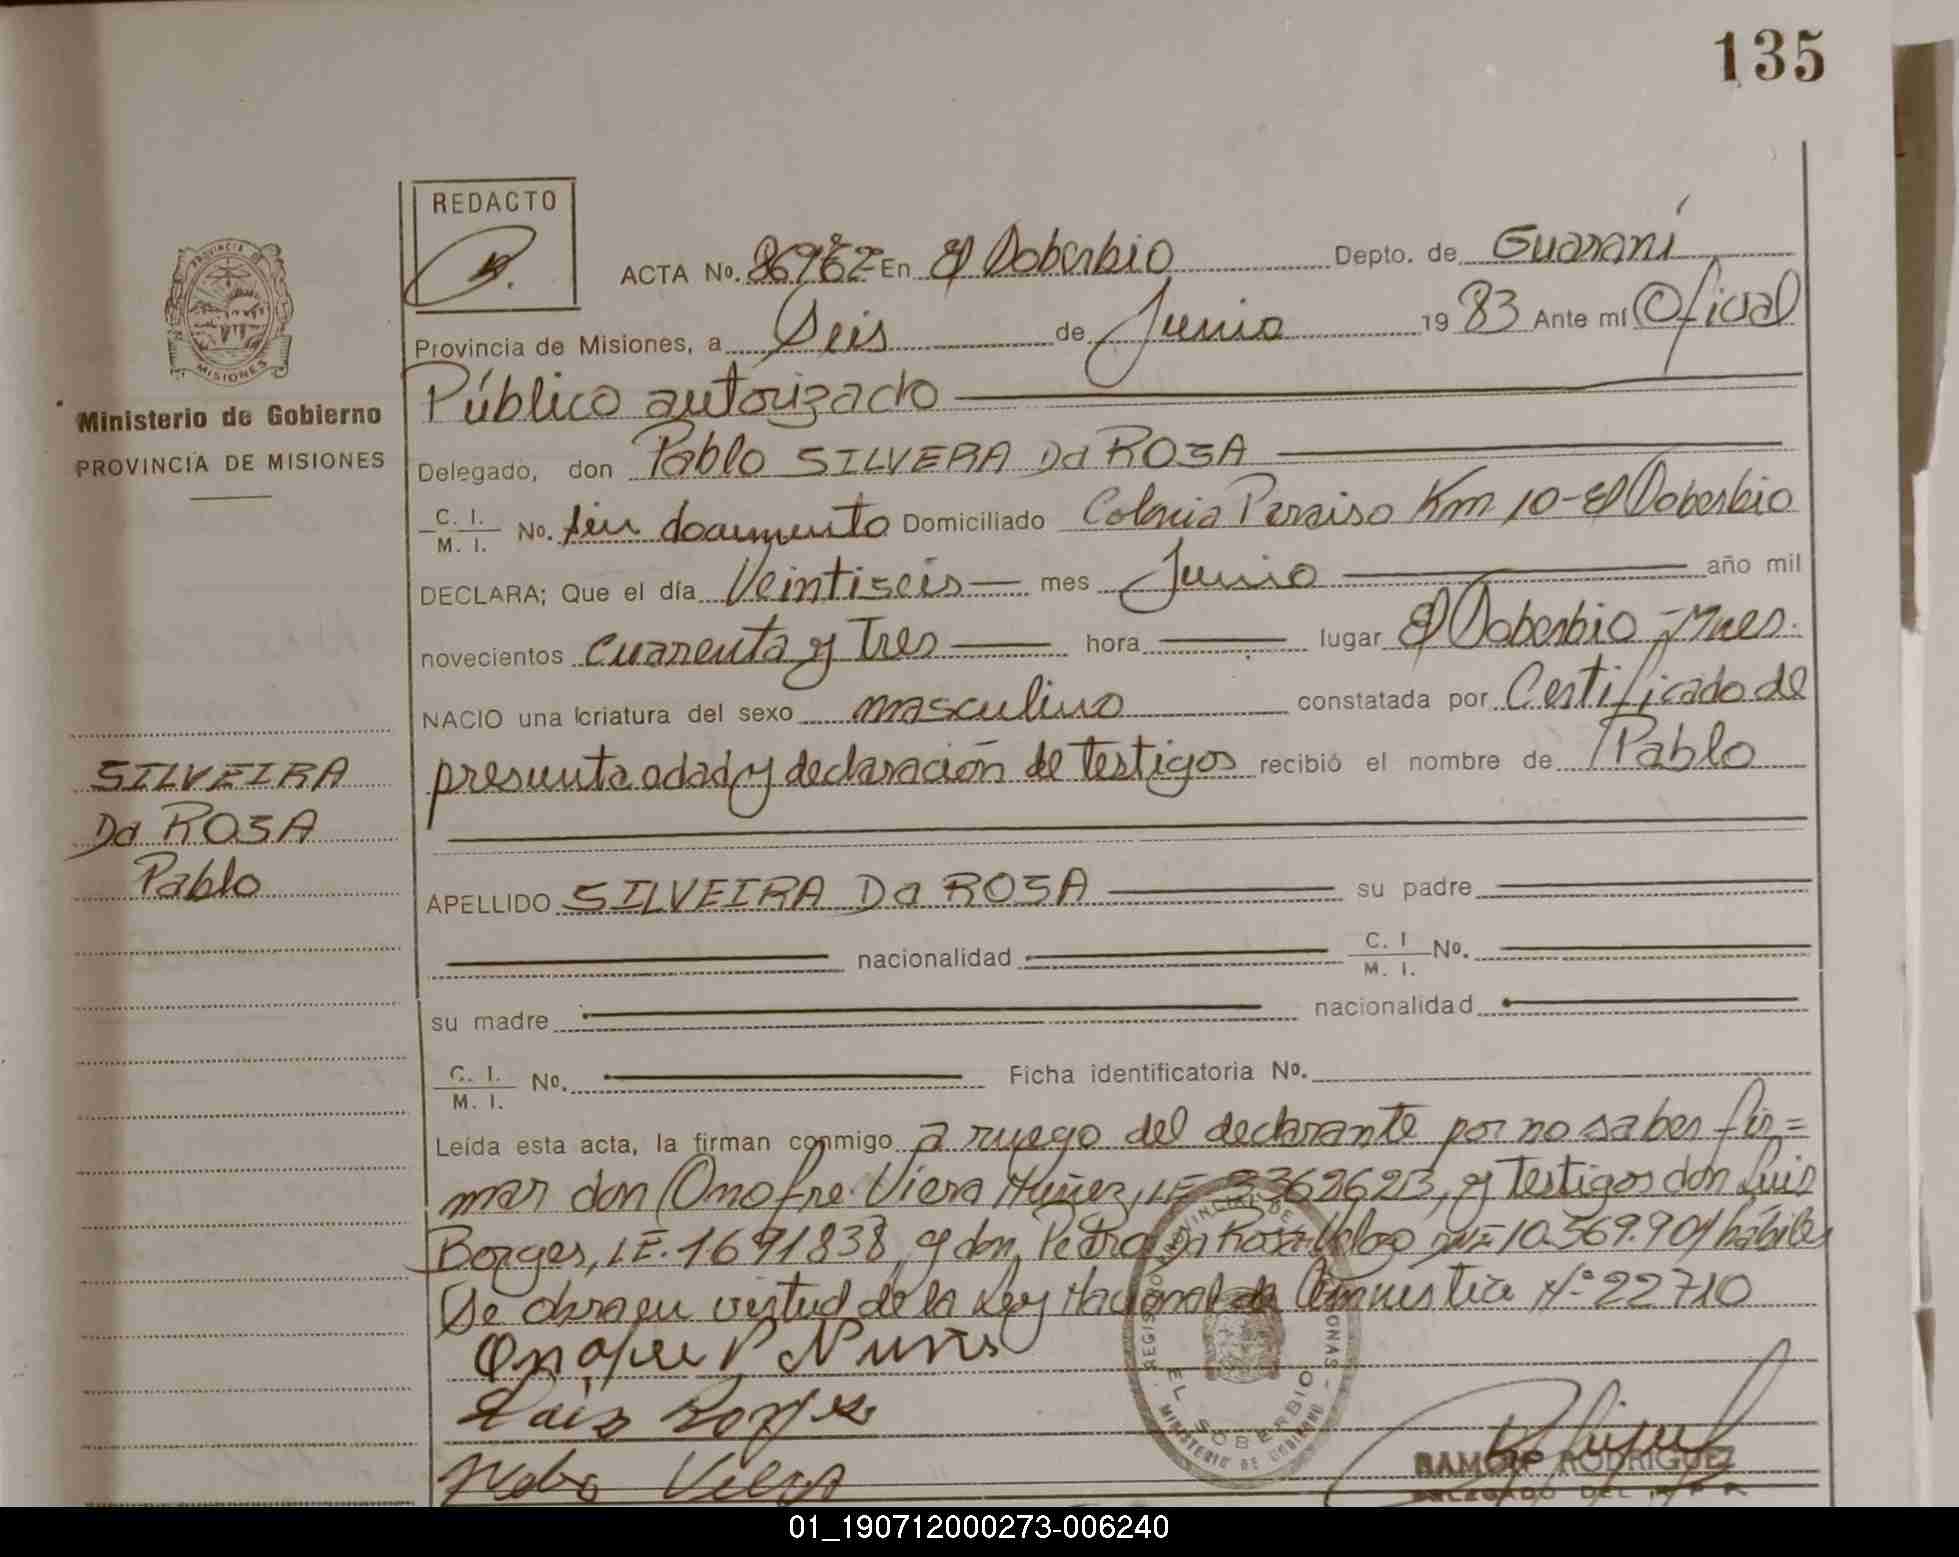 135
REDACTO
ACTA No. 86962 En El Soberbio Depto. de Guaraní
Provincia de Misiones, a Seis de Junio 1983 Ante mí Oficial
Público autorizado
Delegado, don Pablo SILVERA Da ROSA
C. I.
M. I. No. sin documento Domiciliado Colonia Paraiso Km 10-El Soberbio
DECLARA; Que el día Veintiseis mes Junio año mil
novecientos cuarenta y Tres hora lugar El Soberbio - Mnes.
NACIO una criatura del sexo masculino constatada por Certificado de
presunta edad y declaración de Testigos recibió el nombre de Pablo
APELLIDO SILVEIRA Da ROSA su padre
nacionalidad C. I
M. I. No.
su madre nacionalidad
C. I.
M. I. No. Ficha identificatoria No.
Leída esta acta, la firman conmigo a ruego del declarante por no saber fir=
mar don Onofre Viera Nuñez, L.E. 3362623, y Testigos don Luis
Borges, L.E. 1691838, y don Pedro Da Rosa Veloso 10.569.901 hábiles
Se obra en virtud de la Ley Nacional de Amnistia N° 22710
Luis Borges
PROVINCIA DE
MISIONES
Ministerio de Gobierno
PROVINCIA DE MISIONES
SILVEIRA
Da ROSA
Pablo
REGISTRO PROVINCIAL DE
EL SOBERBIO
MINISTERIO DE GOBIERNO
RAMON RODRIGUEZ
DELEGADO DEL
01_190712000273-006240